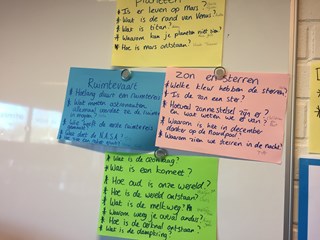 Planeten
* Is er leven op mars?
* Wat is de rand van Venus?
* Wat is titan?
* Waarom kun je planeten niet zien?
* Hoe is mars ontstaan?
Ruimtevaart
* Hoelang duurt een ruimtereis?
* Wat moeten astronauten
voordat ze de ruimte
in mogen?
* Wie heeft de eerste ruimtereis
* Wat doet de N.A.S.A.
Zon en sterren
* Welke kleur hebben de sterren?
* Is de zon een ster?
* Hoeveel zonnestelsel zijn er?
en wat weten we er van?
* Waarom is het in december
donker op de Noordpool?
* Waarom zien we sterren in de nacht?
* Wat is de
* Wat is een komeet?
* Hoe oud is onze wereld?
* Hoe is de wereld ontstaan?
* Wat is de melkweg?
* Waarom weeg je overal anders?
* Hoe is de oerknal ontstaan?
* Wat is de dampkring?